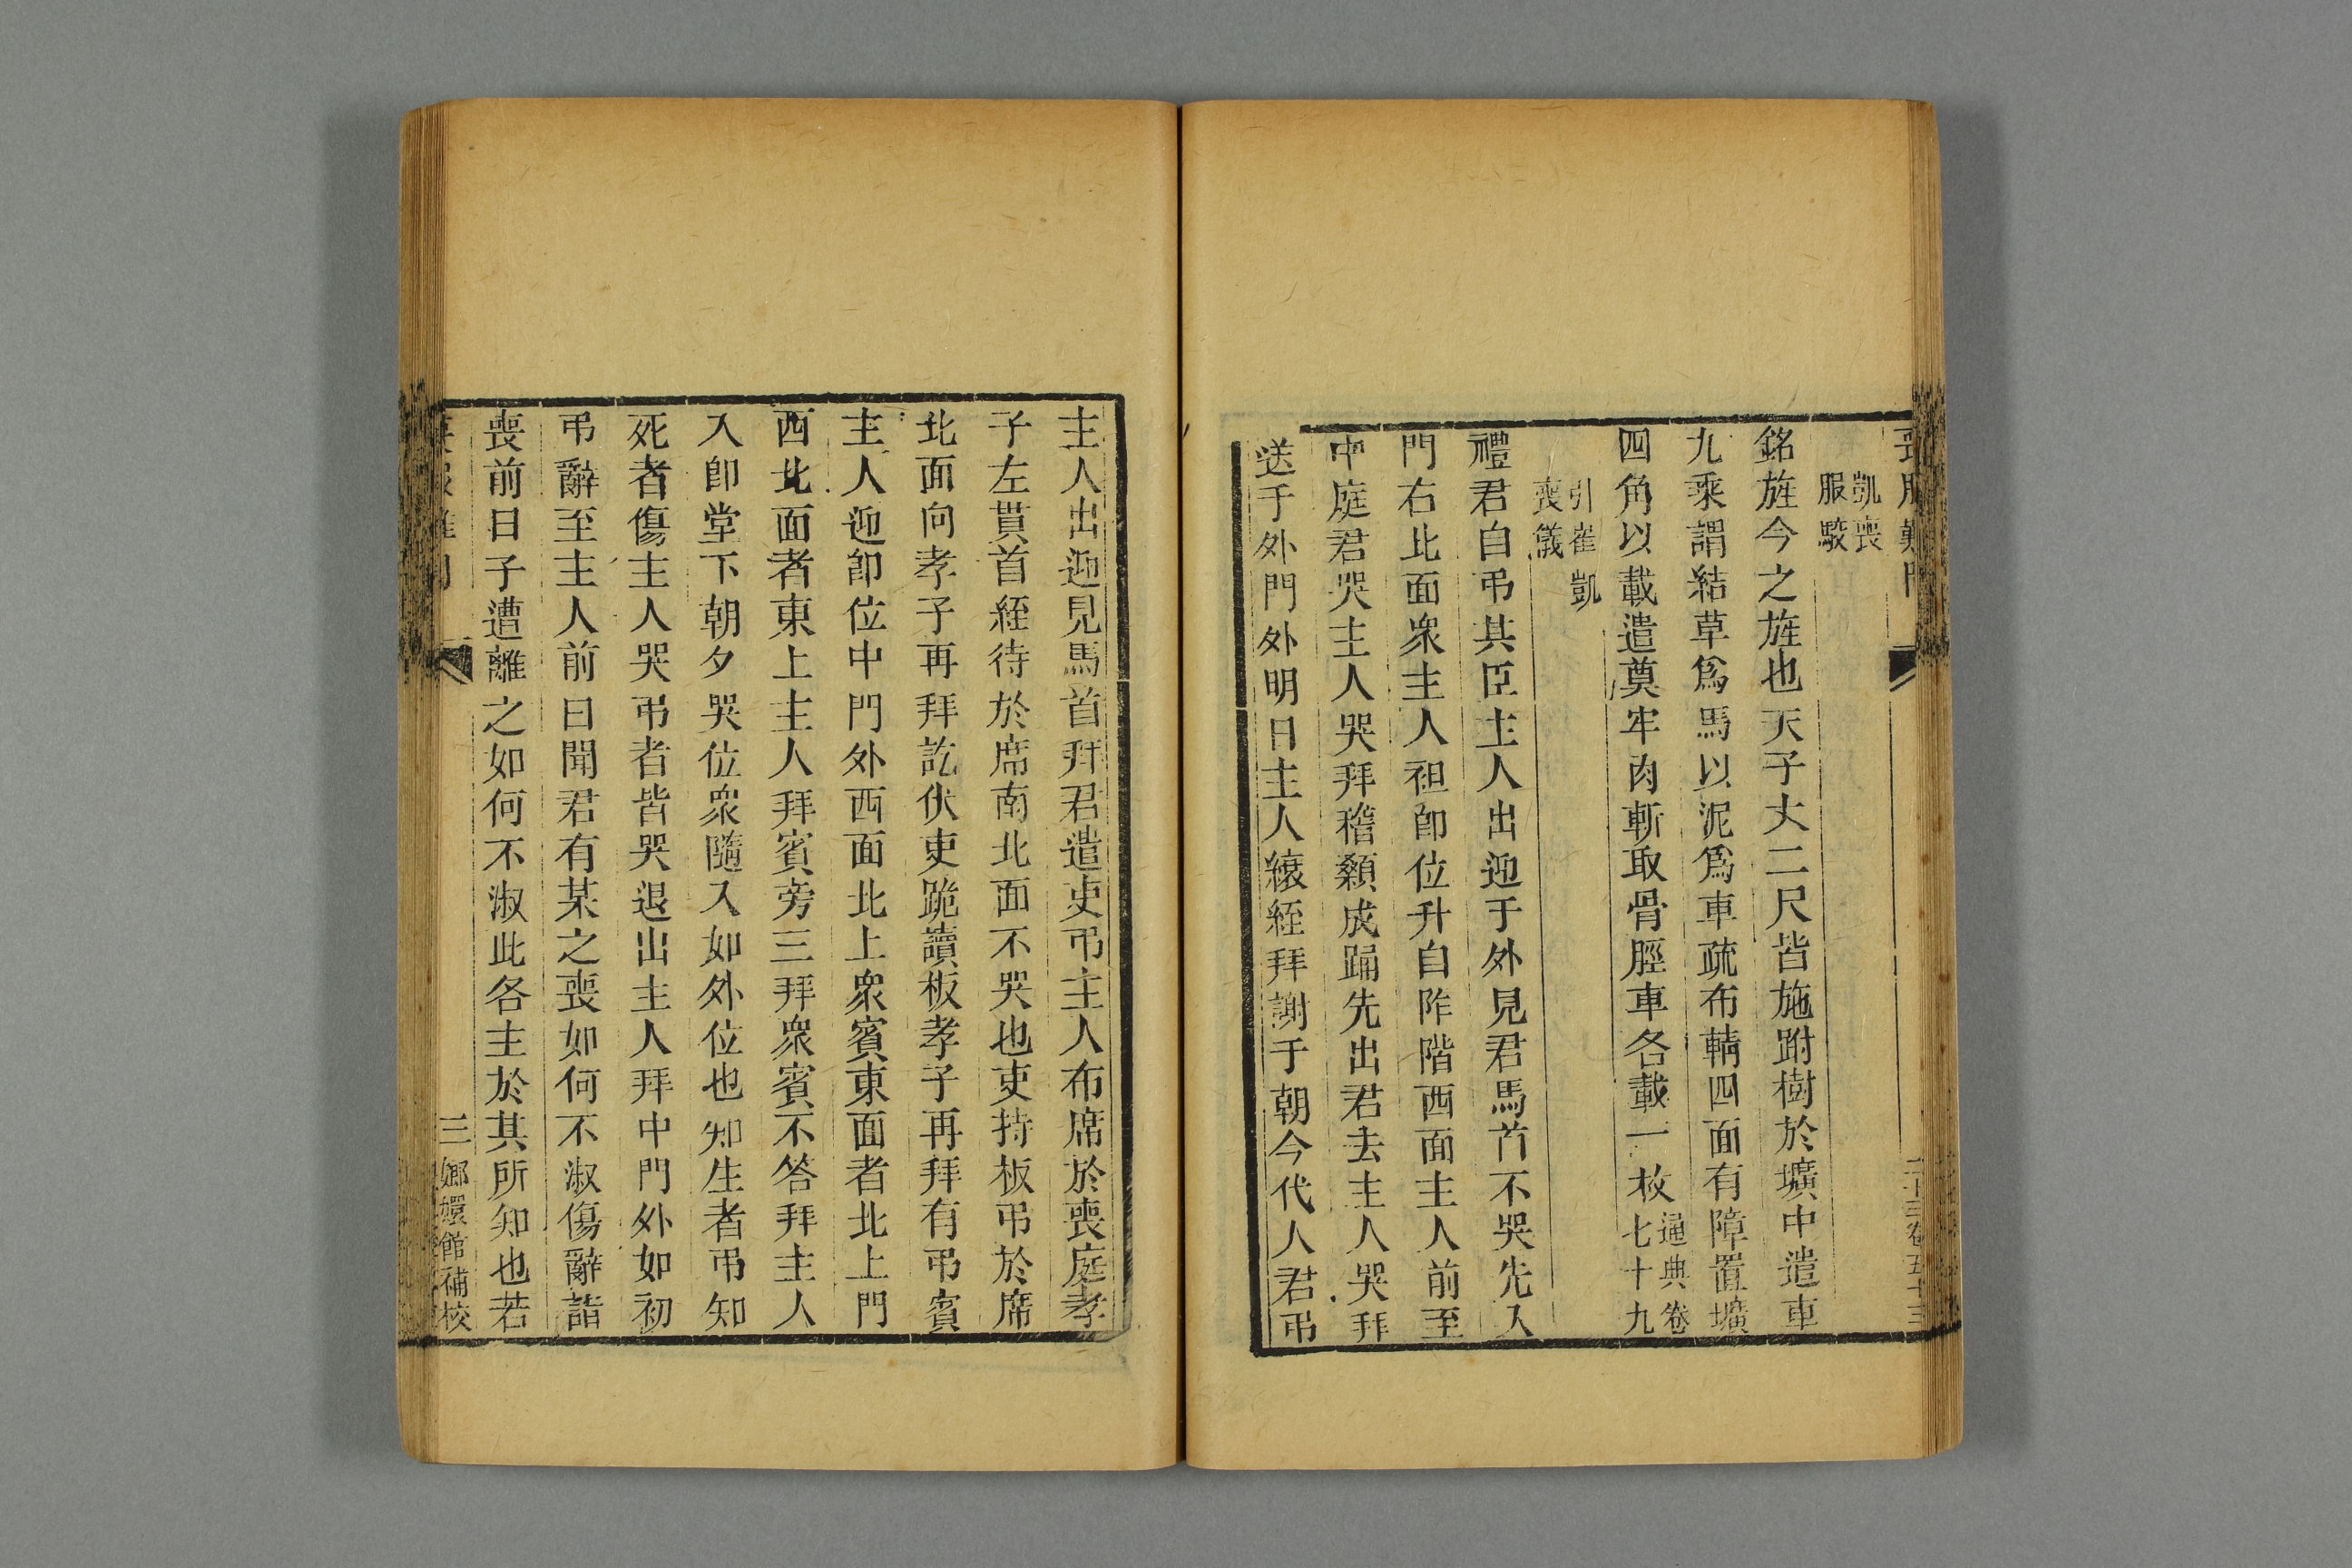 凱喪
服駮
銘旌今之旌也天子丈二尺皆施跗樹於壙中遣車
九乘謂結草爲馬以泥爲車疏布輤四面有障置壙
四角以載遣奠牢肉斬取骨脛車各載一枚通典卷
七十九
引崔凱
喪儀
禮君自弔其臣主人出迎于外見君馬首不哭先入
門右北面衆主人袒卽位升自阼階西面主人前至
中庭君哭主人哭拜稽顙成踊先出君去主人哭拜
送于外門外明日主人縗絰拜謝于朝今代人君弔
主人出迎見馬首拜君遣吏弔主人布席於喪庭孝
子左貫首絰待於席南北面不哭也吏持板弔於席
北面向孝子再拜訖伏吏跪讀板孝子再拜有弔賓
主人迎卽位中門外西面北上衆賓東面者北上門
西北面者東上主人拜賓旁三拜衆賓不答拜主人
入卽堂下朝夕哭位衆隨入如外位也知生者弔知
死者傷主人哭弔者皆哭退出主人拜中門外如初
弔辭至主人前曰聞君有某之喪如何不淑傷辭詣
喪前曰子遭離之如何不淑此各主於其所知也若
三 嫏嬛館補校